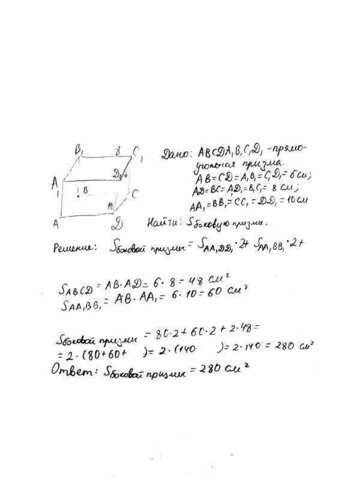 B₁ 8 C₁
A₁ D₁
B C
10
A D
Дано: ABCDA₁B₁C₁D₁ - прямо-
угольная призма.
AB = CD = A₁B₁ = C₁D₁ = 6 см;
AD = BC = A₁D₁ = B₁C₁ = 8 см;
AA₁ = BB₁ = CC₁ = DD₁ = 10 см
Найти: Sбоковую призмы.
Решение: Sбоковой призмы = SAA₁DD₁ · 2 + SAA₁BB₁ · 2 +
SABCD = AB · AD = 6 · 8 = 48 см²
SAA₁BB₁ = AB · AA₁ = 6 · 10 = 60 см²
Sбоковой призмы = 80 · 2 + 60 · 2 + 2 · 48 =
= 2 · (80 + 60 + ) = 2 · (140 ) = 2 · 140 = 280 см²
Ответ: Sбоковой призмы = 280 см²